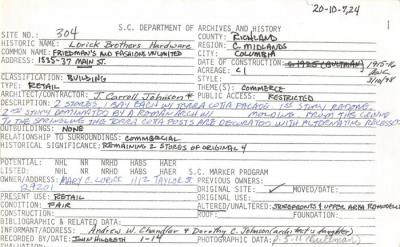 20-10-7,24
S.C. DEPARTMENT OF ARCHIVES AND HISTORY
SITE NO.: 304 COUNTY: RICHLAND
HISTORIC NAME: Lorick Brothers Hardware REGION: C. MIDLANDS
COMMON NAME: FRIEDMAN'S AND FASHIONS UNLIMITED CITY: COLUMBIA
ADDRESS: 1535-37 MAIN ST. DATE OF CONSTRUCTION:
ACREAGE: <1
CLASSIFICATION: BUILDING
TYPE: RETAIL THEME(S): COMMERCE
ARCHITECT/CONTRACTOR: J. Carroll Johnson PUBLIC ACCESS: RESTRICTED
DESCRIPTION: 2 STORIES, 1 BAY EACH W/ TERRA COTTA FACADE. 1ST STORY REDONE,
2ND STORY DOMINATED BY A ROMAN ARCH W/ MOLDING FROM THIS CENTER
TO THE SPRINGING THIS TERRA COTTA POSTS ARE DECORATED WITH ALTERNATING
OUTBUILDINGS: NONE
RELATIONSHIP TO SURROUNDINGS: COMMERCIAL
HISTORICAL SIGNIFICANCE: REMAINING 2 STORES OF ORIGINAL 4
POTENTIAL: NHL NR NRHD HABS HAER S.C. MARKER PROGRAM
LISTED: NHL NR NRHD HABS HAER PREVIOUS OWNERS:
OWNER/ADDRESS: MARY C. 1112 TAYLOR ST.
29201 ORIGINAL SITE: MOVED/DATE:
PRESENT USE: RETAIL ORIGINAL USE:
CONDITION: FAIR ALTERED/UNALTERED: STOREFRONTS & UPPER AREA REMODELED
CONSTRUCTION: ROOF: FOUNDATION:
BIBLIOGRAPHIC & RELATED DATA:
INFORMANT: Andrew W. Chandler & Dorothy C. Johnson (architect's daughter)
RECORDED BY/DATE: JOHN HILDRETH 1-14 PHOTOGRAPHIC DATA: